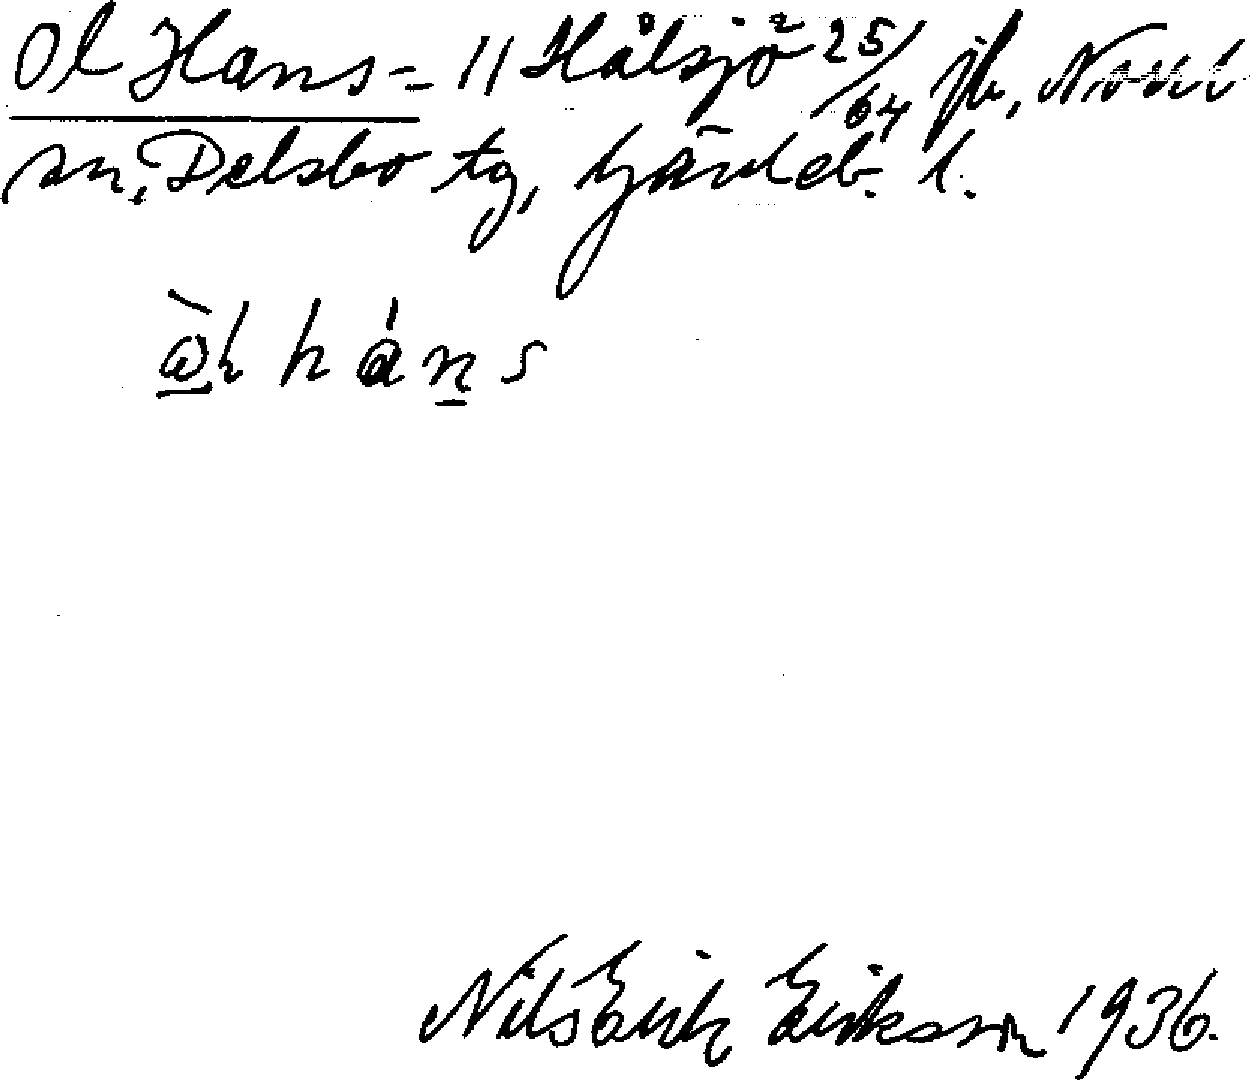 Ol Hans = 11 Hålsjö 2 25/64 jb, Norr
sn, Delsbo tg, Gävleb. l.
h á n s
Nils Erik Eriksson 1936.